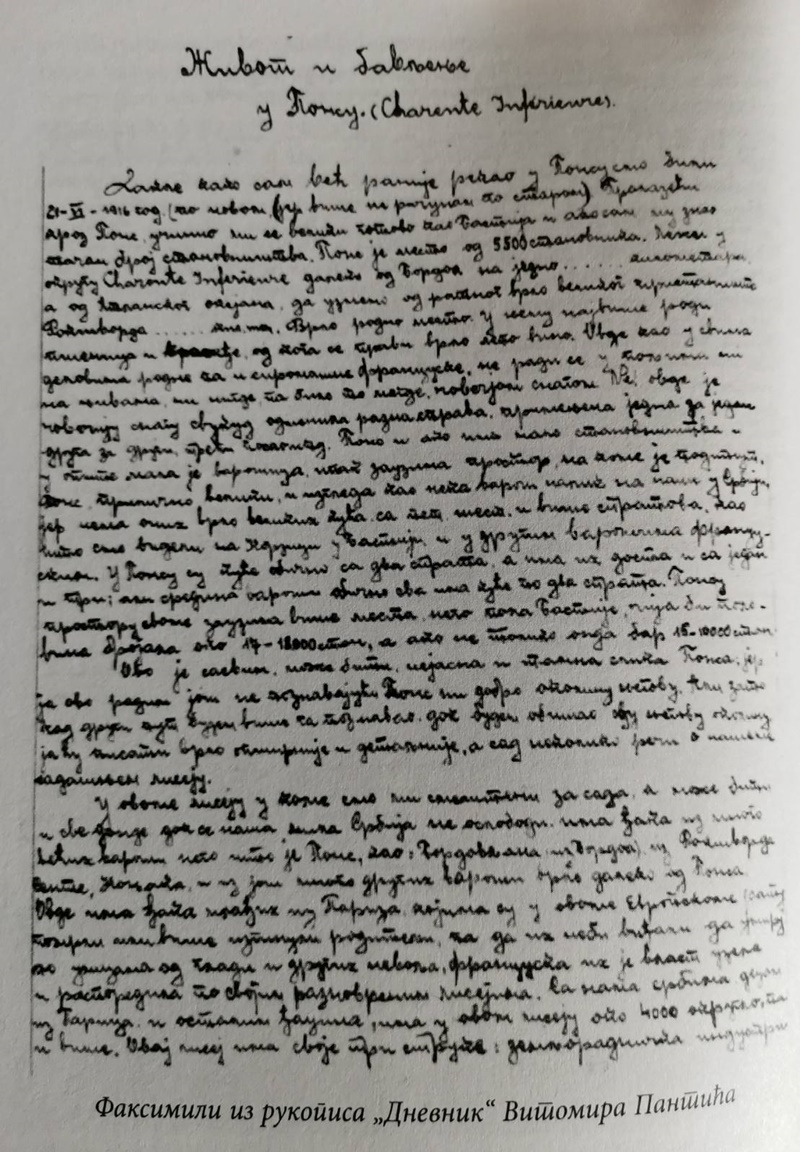 Живот и бављење
у Понсу. (Charente Inférieure).
Дакле како сам већ раније рекао у Понсу смо били
21-XI-1916 год. (по новом јер више не рачунам по старом) Пролазећи
кроз Понс, учинио ми се велики готово као Бастија и ако сам му знао
тачан број становништва. Понс је место од 5500 становника. Лежи у
округу Charente Inférieure далеко од Бордоа на једно ...... километара,
а од Атланског океана, да узмемо од ратног врло великог пристаништа
Рошфорда ..... км. Врло родно место. У њему највише роди
пшеница и грожђе, од кога се прави врло лепо вино. Овде као у свима
деловима родне па и сиромашне Француске, не ради се у
на њивама, ни нигде па било то где, човечјом снагом. Не, овде је
човечију снагу свугде одменила разна справа, примењена једна за једно
друга за друго, трећа . Понс и ако има мало становништва и
у опште мала је варошица, ипак заузима простор, на коме је подигнут,
доста прилично велики, и изгледа као нека варош налик на наше у Србији,
јер нема оних врло великих кућа са пет, шест, и више спратова, као
што смо видели на Корзици у Бастији и у другим варошима францу-
ским. У Понсу су куће обично са два спрата, а има их доста и са један
и три; али средина вароши обично сва има куће по два спрата. Понс
простору своме заузима више места, него пола Бастије, чија би поло-
вина бројала око 17-18000 стан, а ако не толико онда бар 15-10000 стан.
Ово је сасвим, може бити, нејасна и тамна слика Понса, јер
ја ово радим још не познавајући Понс ни добро околину његову. Али зато
кад други пут будем више га познавао, док будем обишао сву његову околину
ја ћу писати врло опширније и детаљније, а сад неколико речи о нашем
садашњем лисеју.
У овоме лисеју у коме смо ми смештени за сада, а може бити
и све донде док се наша мила Србија не ослободи, има ђака из много
већих вароши него што је Понс, као: Бордоа (из Бордоа), из Рошфорда
Сенте, Коњака, и из још много других вароши врло далеко од Понса.
Овде има ђака чак из Париза, којима су у овоме Европскоме рату
помрли или више изгинули родитељи, па да их неби видали да умиру
по улицама од глади и других невоља, француска их је власт узела
и распоредила по својим разноврсним лисејима. Са нама србима децом
из Париза и осталим ђацима, има у овом лисеју око 4000 округло, па
и више. Овај лисеј има своје три струке: земљорадничка индустри
Факсимили из рукописа „Дневник“ Витомира Пантића